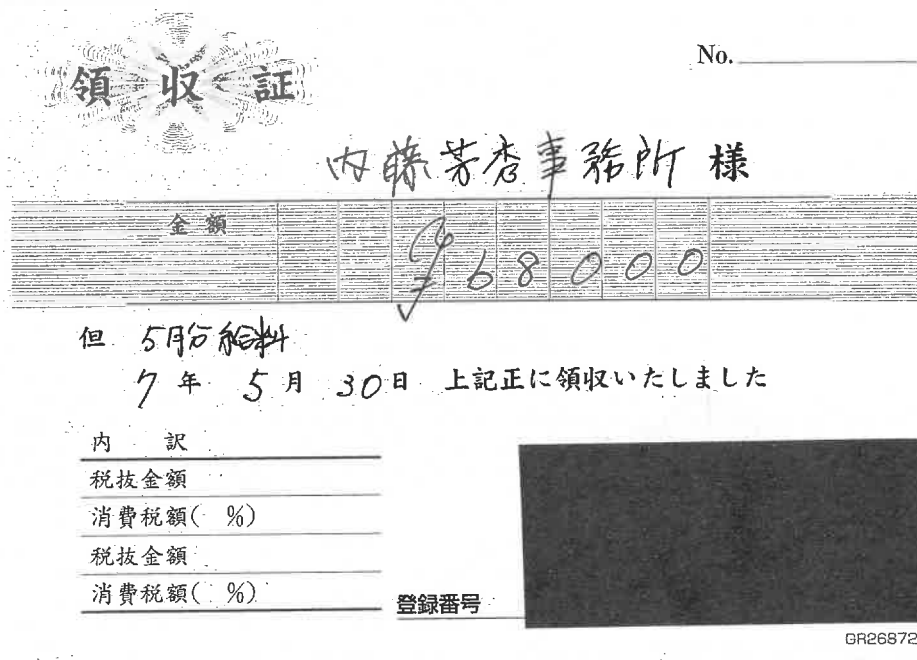 No.
領収証
内藤芳香事務所 様
金額
¥68000
但 5月分給料
7年 5月 30日 上記正に領収いたしました
内 訳
税抜金額
消費税額( %)
税抜金額
消費税額( %)
登録番号
GR26872